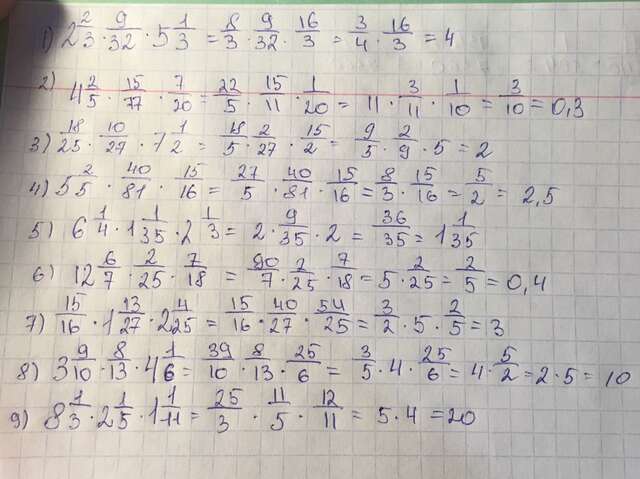 1) 2 2/3 · 9/32 · 5 1/3 = 8/3 · 9/32 · 16/3 = 3/4 · 16/3 = 4
2) 4 2/5 · 15/77 · 7/20 = 22/5 · 15/11 · 1/20 = 11 · 3/11 · 1/10 = 3/10 = 0,3
3) 18/25 · 10/27 · 7 1/2 = 18/5 · 2/27 · 15/2 = 9/5 · 2/9 · 5 = 2
4) 5 2/5 · 40/81 · 15/16 = 27/5 · 40/81 · 15/16 = 8/3 · 15/16 = 5/2 = 2,5
5) 6 1/4 · 1 1/35 · 2 1/3 = 2 · 9/35 · 2 = 36/35 = 1 1/35
6) 12 6/7 · 2/25 · 7/18 = 90/7 · 2/25 · 7/18 = 5 · 2/25 = 2/5 = 0,4
7) 15/16 · 1 13/27 · 2 4/25 = 15/16 · 40/27 · 54/25 = 3/2 · 5 · 2/5 = 3
8) 3 9/10 · 8/13 · 4 1/6 = 39/10 · 8/13 · 25/6 = 3/5 · 4 · 25/6 = 4 · 5/2 = 2 · 5 = 10
9) 8 1/3 · 2 1/5 · 1 1/11 = 25/3 · 11/5 · 12/11 = 5 · 4 = 20